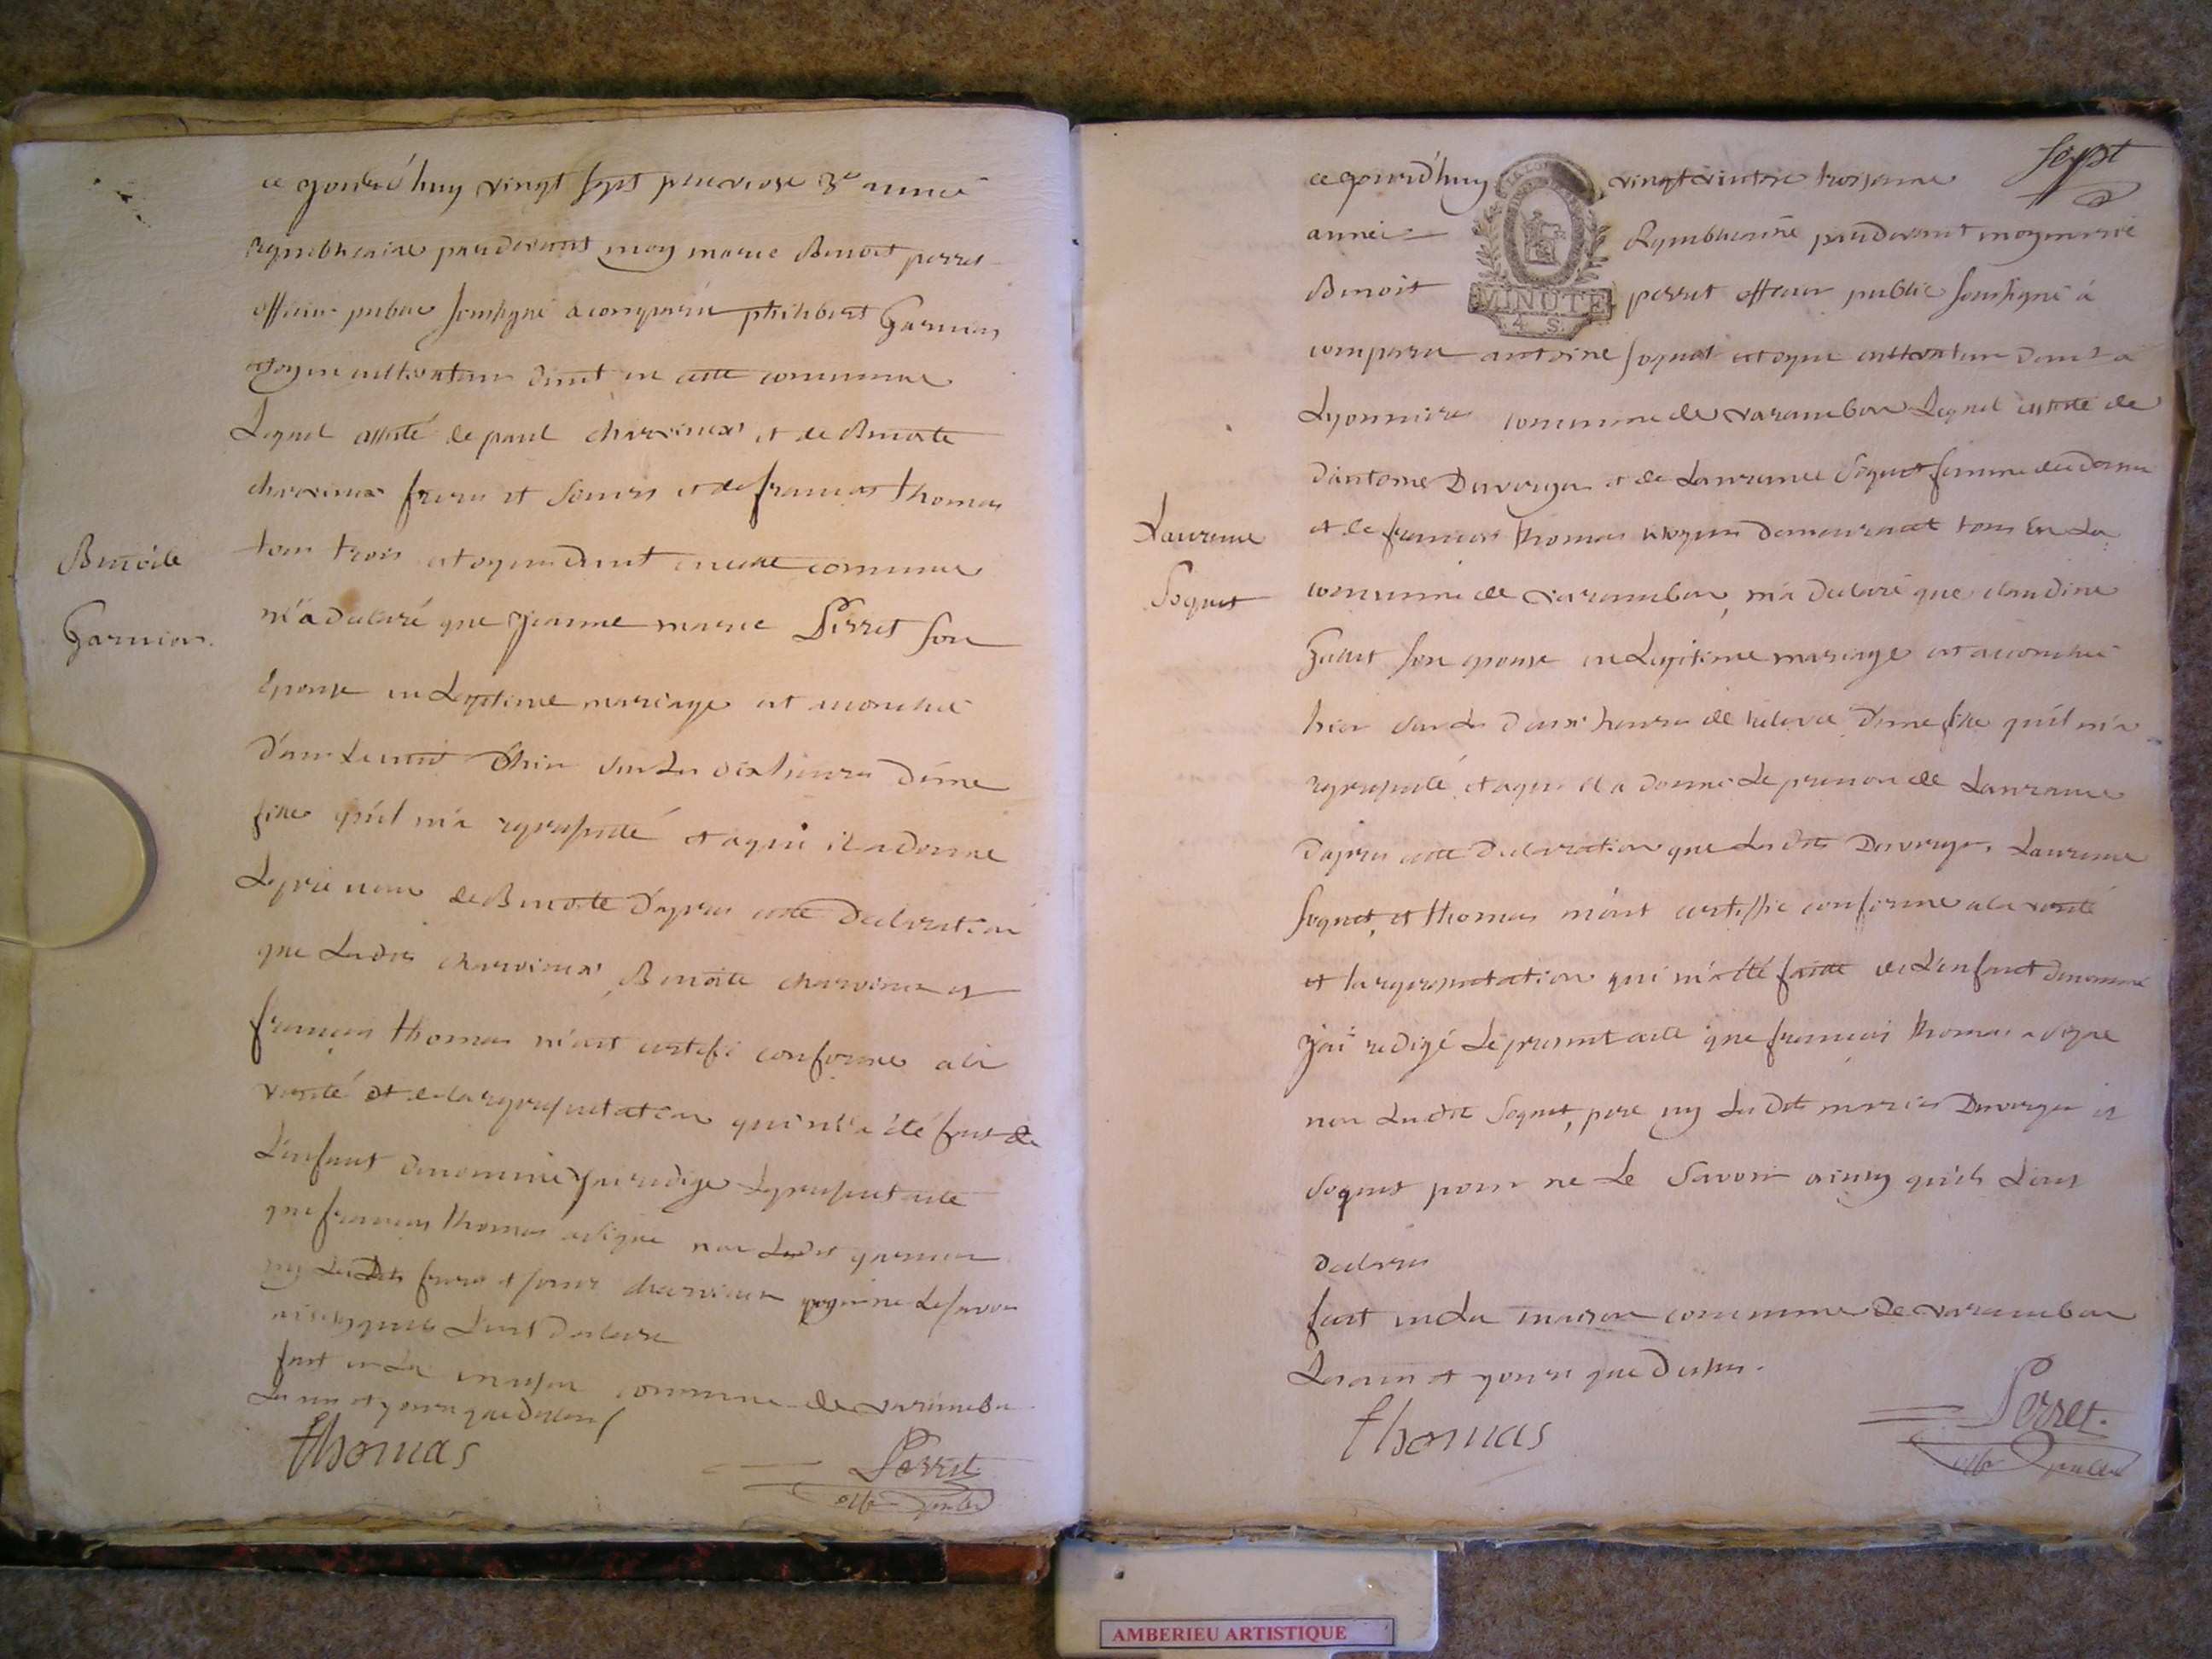 ce jourd'huy vingt sept pluviose 3e année
republicaine pardevant moy marie Benoit perret
officier public soussigné a comparu philibert Garnier
citoyen cultivateur dmt en cette commune
Lequel assisté de paul charvieux et de Benoite
charvieux frere et soeurs et de francois thomas
tous trois citoyens dmt en cette commune
Benoite
Garnier.
m'a declaré que jeanne marie Perret son
epouse en Legitime mariage est accouchée
d'hier sur Les dix heures d'une
fille qu'il m'a representé et a qui il a donne
Le prenom de Benoite D'apres cette Declaration
que Lesdits charvieux, Benoite charvieux et
francois thomas m'ont certifé conforme a la
verité et de la representation qui m'a été fait de
L'enfant denommé j'ai redigé Le present acte
que francois thomas a signe non Ledit garnier
ny Lesdits frere et soeur charvieux pour ne Le savoir
ainsy quils L'ont declare
fait en La maison commune de varambon
Les an et jours que dessus
thomas
Perret
off public
sept
ce jourd'huy vingt troisieme
année Republicaine pardevant moy marie
MINUTE
4 S.
Benoit perret officier public soussigné à
comparu antoine soquet citoyen cultivateur dmt a
Lyonniere commune de varambon Lequel assisté de
d'antoine Duverger et de Laurence Soquet femme du dernier
et de francois thomas citoyens demeurant tous En La
Laurence
Soquet
commune de varambon, m'a declaré que claudine
son epouse en Legitime mariage est accouchée
hier sur Les deux heures de relevée d'une fille qu'il m'a
representé et a qui il a donné Le prenom de Laurence
d'apres cette declaration que Lesdits Duverger, Laurence
Soquet, et thomas m'ont certiffié conforme a la verité
et la representation qui m'a été faitte de L'enfant denommé
j'ai redigé Le present acte que francois thomas a signe
non Ledit Soquet, pere ny Lesdits mariés Duverger et
Soquet pour ne Le Savoir ainsy quils L'ont
declaré
fait en La maison commune de varambon
Les an et jours que dessus.
thomas
Perret.
off public
AMBERIEU ARTISTIQUE